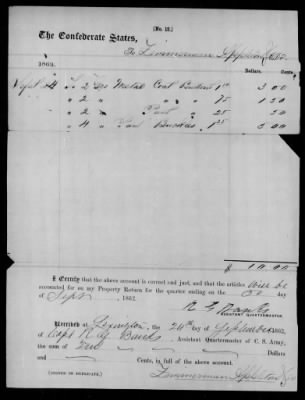 [No. 12.]
The Confederate States,
To Zimmerman Co
1863. Dollars. Cents.
Sept 24 To 2 Metal Coal 1 50 3 00
" 2 " " 75 1 50
" 2 " 25 50
" 4 1 25 5 00
$ 10.00
I Certify that the above account is correct and just, and that the articles will be
accounted for on my Property Return for the quarter ending on the 30 day
of Sept , 1862.
R G Banks
Assistant Quartermaster.
Received at Lexington the 24th day of September 1862,
of Capt R. G. Banks , Assistant Quartermaster of C. S. Army,
the sum of Ten Dollars
and Cents, in full of the above account.
(Signed in duplicate.) Zimmerman